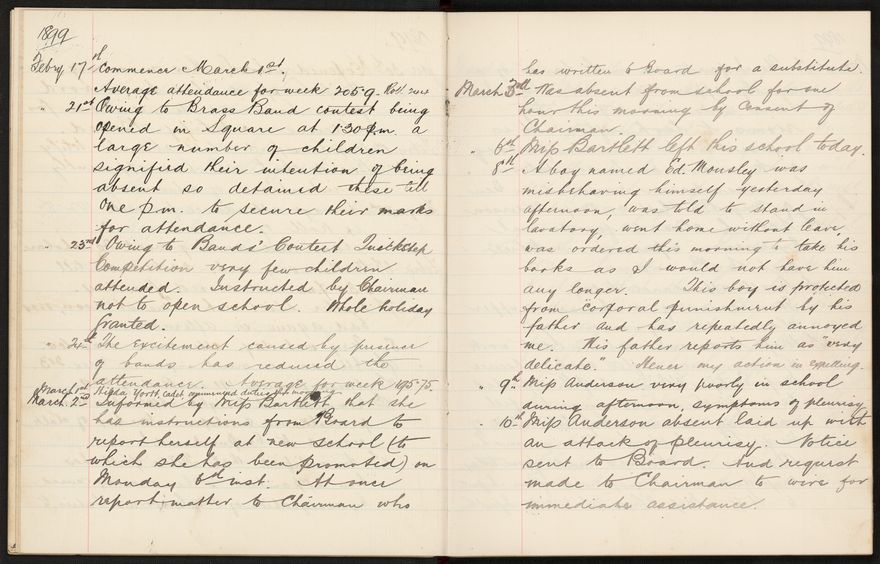 1899
Febry 17th commence March 1st.
Average attendance for week 205.9. Roll
" 21st Owing to Brass Band contest being
opened in Square at 1.30 p.m. a
large number of children
signified their intention of being
absent so detained these till
One p.m. to secure their marks
for attendance.
" 23rd Owing to Bands' Contest Quickstep
Competition very few children
attended. Instructed by Chairman
not to open school. Whole holiday
Granted.
24th The excitement caused by presence
of bands has reduced the
attendance. Average for week 195.75
March 1st Hilda York, cadet, commenced duties this morning
March 2nd Informed by Miss Bartlett that she
has instructions from Board to
report herself at new school (to
which she has been promoted) on
Monday 6th inst. At once
report matter to Chairman who
has written to Board for a substitute.
March 3rd Was absent from school for one
hour this morning by consent of
Chairman.
" 6th Miss Bartlett left this school today.
8th A boy named Ed. Mousley was
misbehaving himself yesterday
afternoon, was told to stand in
lavatory, went home without leave,
was ordered this morning to take his
books as I would not have him
any longer. This boy is protected
from corporal punishment by his
father and has repeatedly annoyed
me. His father reports him as "very
delicate." Hence my action in expelling.
" 9th Miss Anderson very poorly in school
during afternoon, symptoms of pleurisy
" 10th Miss Anderson absent laid up with
an attack of pleurisy. Notice
sent to Board. And request
made to Chairman to wire for
immediate assistance.